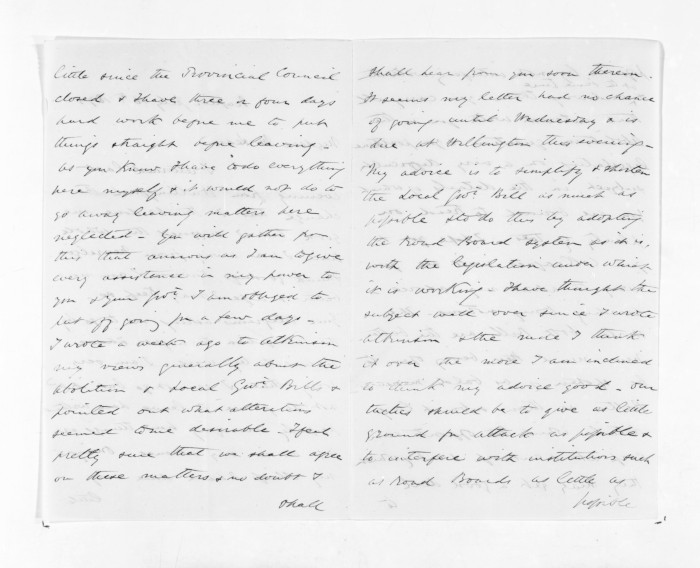 little since the Provincial Council
closed & I have three or four days
hard work before me to put
things straight before leaving -
as you know I have to do everything
here myself & it would not do to
go away leaving matters here
neglected - You will gather from
this that anxious as I am to give
every assistance in my power to
you & your Govt. I am obliged to
put off going for a few days -
I wrote a week ago to Atkinson
my views generally about the
abolition & Local Govt. Bills &
pointed out what alterations
seemed to me desirable - I feel
pretty sure that we shall agree
on these matters & no doubt I
shall
shall hear from you soon thereon.
It seems my letter had no chance
of going until Wednesday & is
due at Wellington this evening -
My advice is to simplify & shorten
the Local Govt. Bill as much as
possible & to do this by adopting
the Road Board system as it is,
with the legislation under which
it is working - I have thought the
subject well over since I wrote
Atkinson & the more I think
it over the more I am inclined
to think my advice good - our
tactics should be to give as little
ground for attack as possible &
to interfere with institutions such
as Road Boards as little as
possible